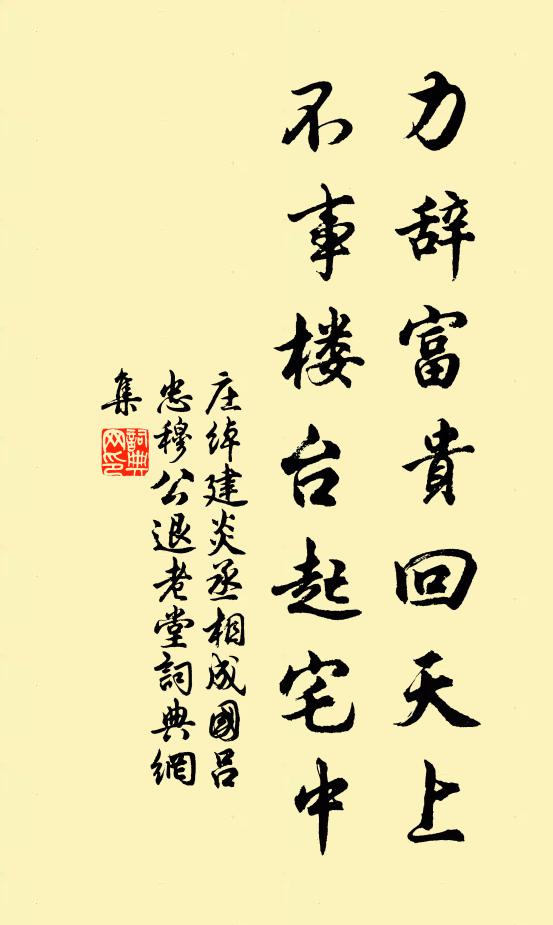 力辞富貴回天上
不事楼台起宅中
庄绰建炎丞相成國呂
忠穆公退老堂詞典網
集
詞典网印